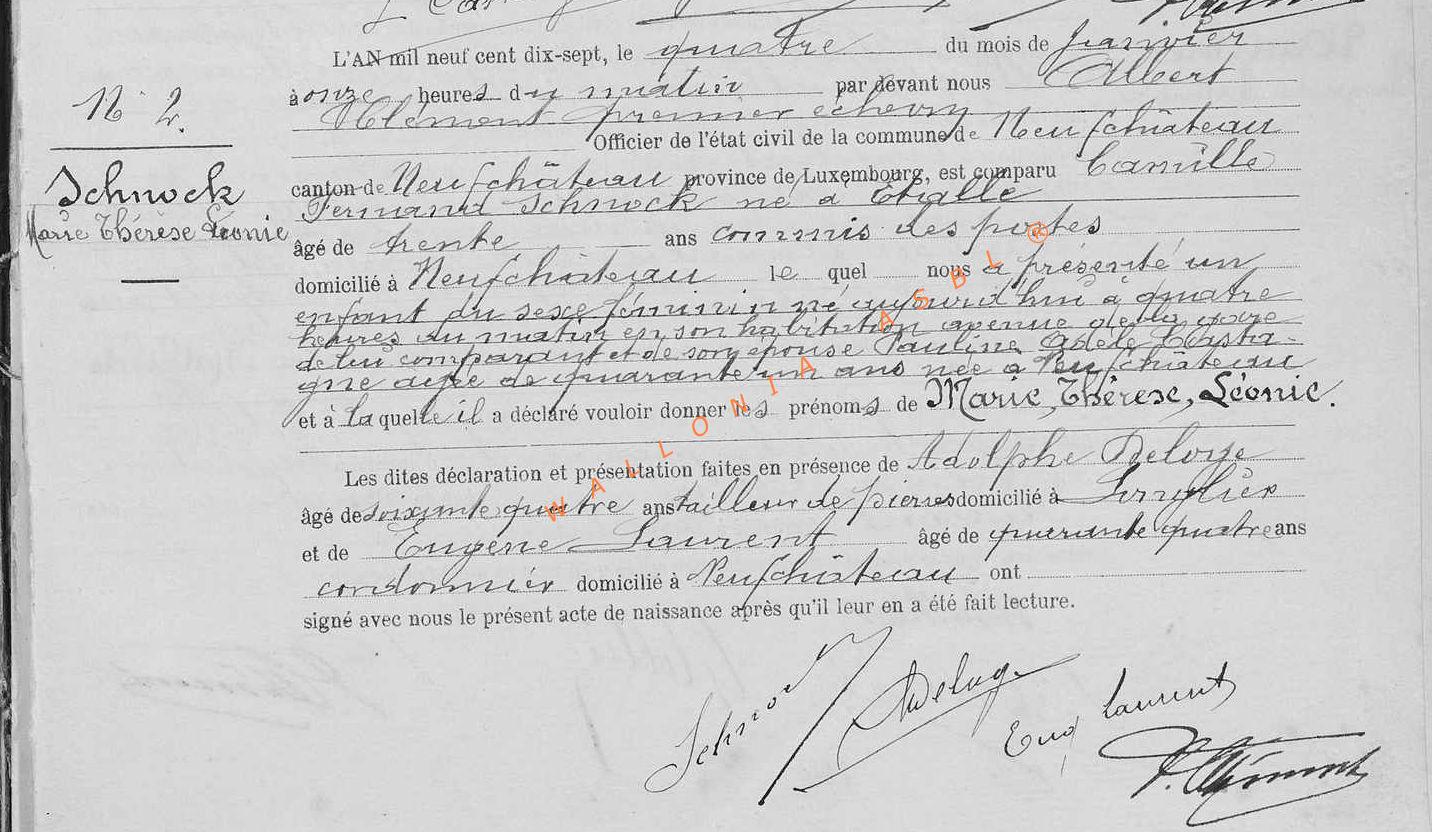 L'AN mil neuf cent dix-sept, le quatre du mois de janvier
à onze heures du matin par devant nous Albert
Clément premier échevin
Officier de l'état civil de la commune de Neufchâteau
N° 2.
canton de Neufchâteau province de Luxembourg, est comparu Camille
Schnock
Marie Thérèse Léonie
Fernand Schnock né à Etalle
âgé de trente ans commis des postes
domicilié à Neufchâteau le quel nous a présenté un
enfant du sexe féminin né aujourd'hui à quatre
heures du matin en son habitation avenue de la gare
de lui comparant et de son épouse Pauline Adèle Casta-
gne agée de quarante un ans née à Neufchâteau
et à la quelle il a déclaré vouloir donner les prénoms de Marie, Thérèse, Léonie.
Les dites déclaration et présentation faites en présence de Adolphe
âgé de soixante quatre ans tailleur de pierres domicilié à
et de Eugène Laurent âgé de quarante quatre ans
cordonnier domicilié à Neufchâteau ont
signé avec nous le présent acte de naissance après qu'il leur en a été fait lecture.
WALLONIA ASBL ®
Schnock
Eug Laurent
Clément